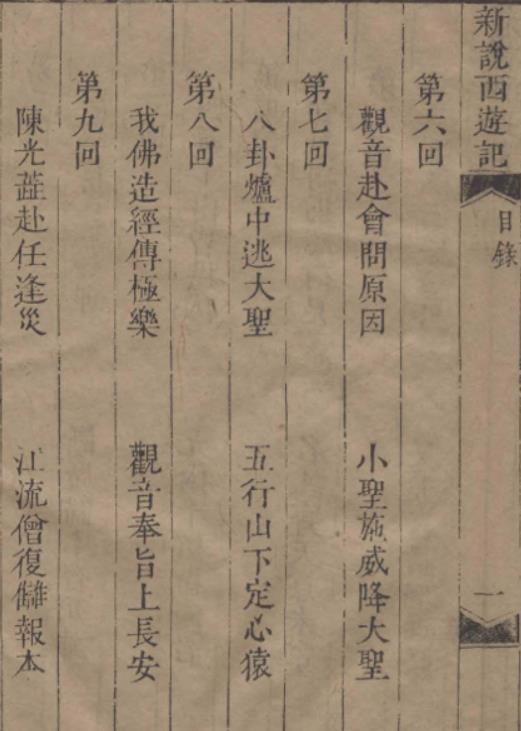 新說西遊記
目錄
一
第六回
觀音赴會問原因　小聖施威降大聖
第七回
八卦爐中逃大聖　五行山下定心猿
第八回
我佛造經傳極樂　觀音奉旨上長安
第九回
陳光蕋赴任逢災　江流僧復讎報本